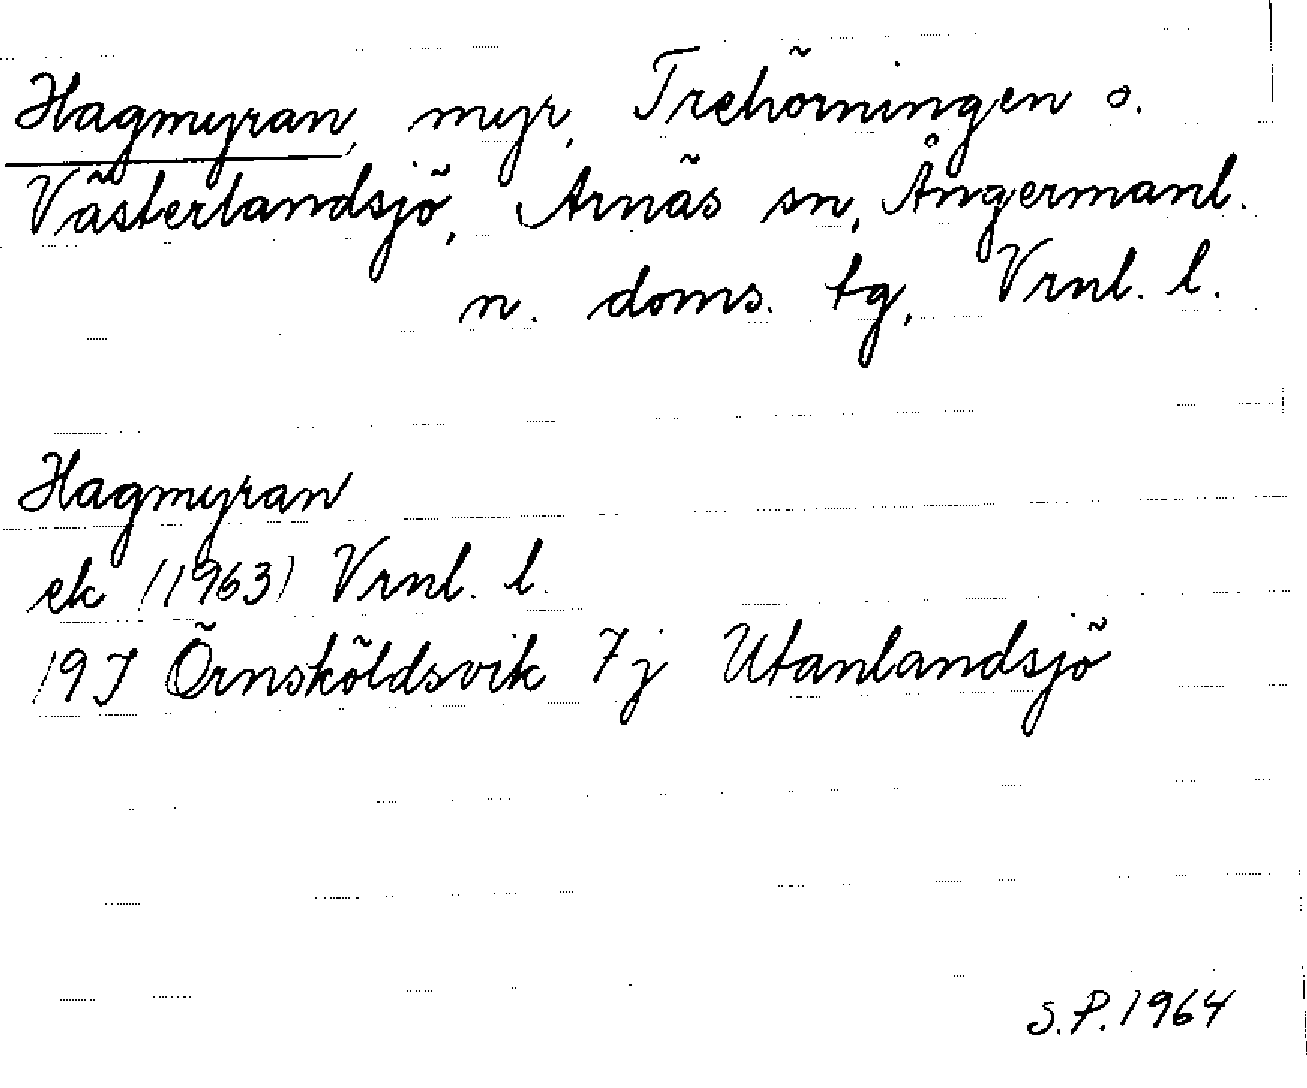 Hagmyran, myr, Trehörningen o.
Västerlandsjö, Arnäs sn, Ångermanl.
n. doms. tg, Vrnl. l.
Hagmyran
ek (1963) Vrnl. l.
19J Örnsköldsvik 7j Utanlandsjö
S.P. 1964